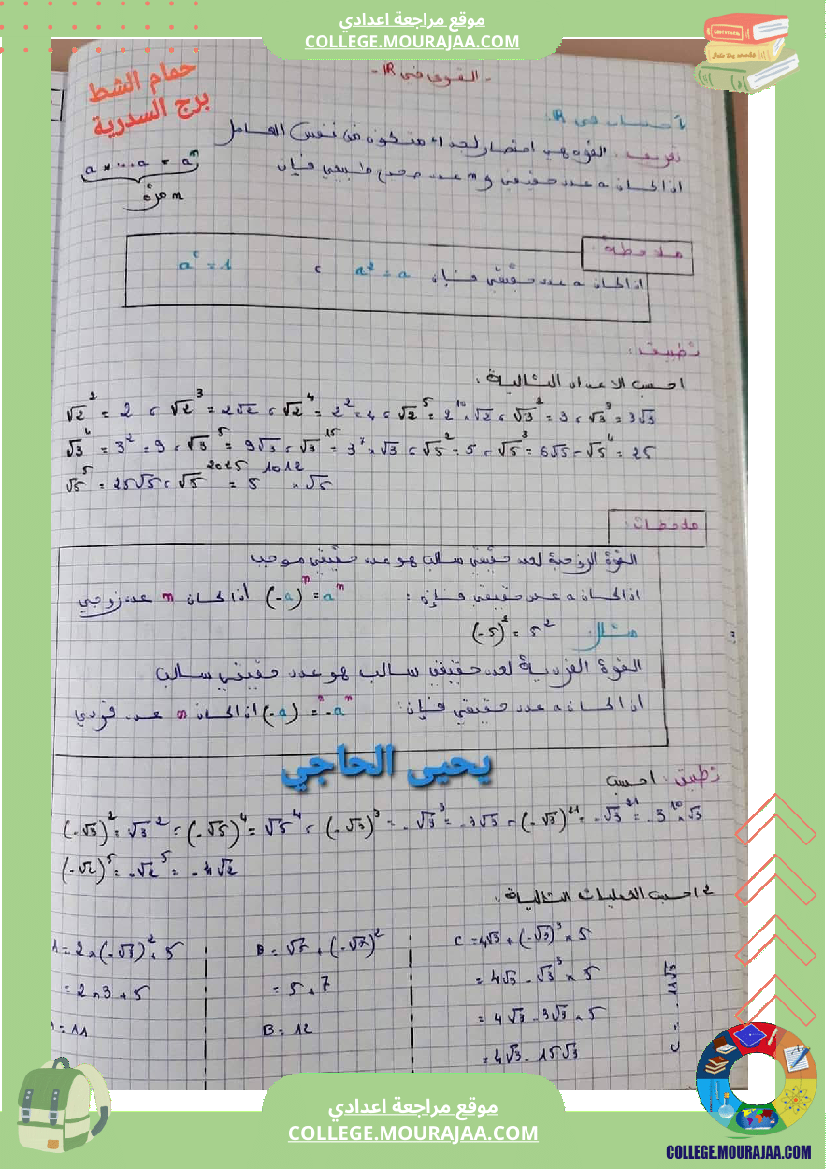 موقع مراجعة اعدادي
COLLEGE.MOURAJAA.COM
حمام الشط
برج السدرية
- القوى في IR -
تعريف: القوة هي اختصار لجداء متكون من نفس العامل
اذا كان a عدد حقيقي و n عدد صحيح طبيعي فإن
a × ... a = aⁿ
n مرة
ملاحظة:
اذا كان a عدد حقيقي فإن
a⁰ = 1
تطبيق:
احسب الاعداد التالية:
√2² = 2 , √2³ = 2√2 , √2⁴ = 2² = 4 , √3² = 3 , √3³ = 3√3
√3⁴ = 3² = 9 , √3⁵ = 9√3 , √3¹⁵ = 3⁷ × √3 , √5² = 5 , √5³ = 6√5 - √5⁴ = 25
√5⁵ = 25√5 , √5²⁰²⁵ = 5¹⁰¹² × √5
ملاحظات:
القوة الزوجية لعدد حقيقي سالب هو عدد حقيقي موجب
اذا كان a عدد حقيقي فإنه : (-a)ⁿ = aⁿ أذا كان n عدد زوجي
مثال: (-5)² = 5²
القوة الفردية لعدد حقيقي سالب هو عدد حقيقي سالب
اذا كان a عدد حقيقي فإن: (-a)ⁿ = -aⁿ اذا كان n عدد فردي
يحيى الحاجي
تطبيق: احسب
(-√3)² = √3² , (-√5)⁴ = √5⁴ , (-√3)³ = -√3³ = -3√3 , (-√3)²¹ = -√3²¹ = -3¹⁰ × √3
(-√2)⁵ = -√2⁵ = -4√2
2) احسب العمليات التالية:
= 2 × 3 + 5
= 11
= 5 + 7
B = 12
C = 4√3 + (-√3)³ × 5
= 4√3 - √3³ × 5
= 4√3 - 3√3 × 5
= 4√3 - 15√3
موقع مراجعة اعدادي
COLLEGE.MOURAJAA.COM
COLLEGE.MOURAJAA.COM